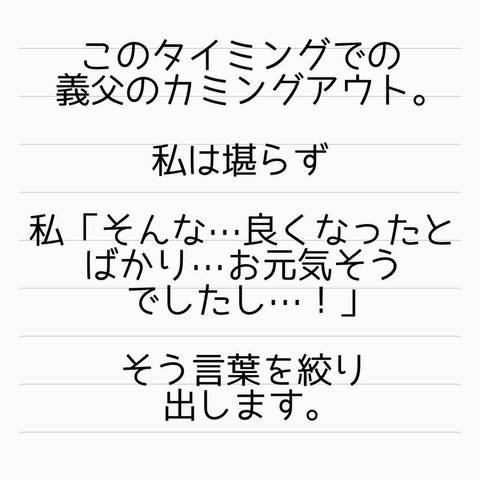 このタイミングでの
義父のカミングアウト。
私は堪らず
私「そんな…良くなったと
ばかり…お元気そう
でしたし…！」
そう言葉を絞り
出します。